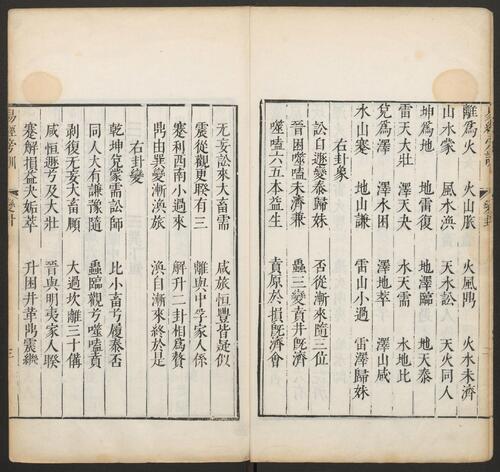 離爲火　火山旅　火風鼎　火水未濟
山水蒙　風水渙　天水訟　天火同人
坤爲地　地雷復　地澤臨　地天泰
雷天大壯　澤天夬　水天需　水地比
兌爲澤　澤水困　澤地萃　澤山咸
水山蹇　地山謙　雷山小過　雷澤歸妹
右卦象
訟自遯變泰歸妹　否從漸來隨三位
晉困噬嗑未濟兼　蠱三變賁井旣濟
噬嗑六五本益生　賁原於損旣濟會
无妄訟來大畜需　咸旅恒豐皆疑似
震從觀更睽有三　離與中孚家人係
蹇利西南小過來　解升二卦相爲贅
鼎由巽變漸渙旅　渙自漸來終於是
右卦變
乾坤屯蒙需訟師　比小畜兮履泰否
同人大有謙豫隨　蠱臨觀兮噬嗑賁
剥復无妄大畜頤　大過坎離三十備
咸恒遯兮及大壯　晉與明夷家人睽
蹇解損益夬姤萃　升困井革鼎震繼
變卦
三